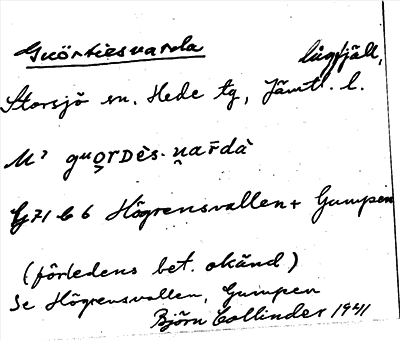 Guörtiesvarda lågfjäll,
Storsjö sn. Hede tg, Jämtl. l.
M² guo̜rDès-u̯ar̄dà
G71 b 6 Högrensvallen + Gumpen
(förledens bet. okänd)
Se Högrensvallen, Gumpen
Björn Collinder 1941